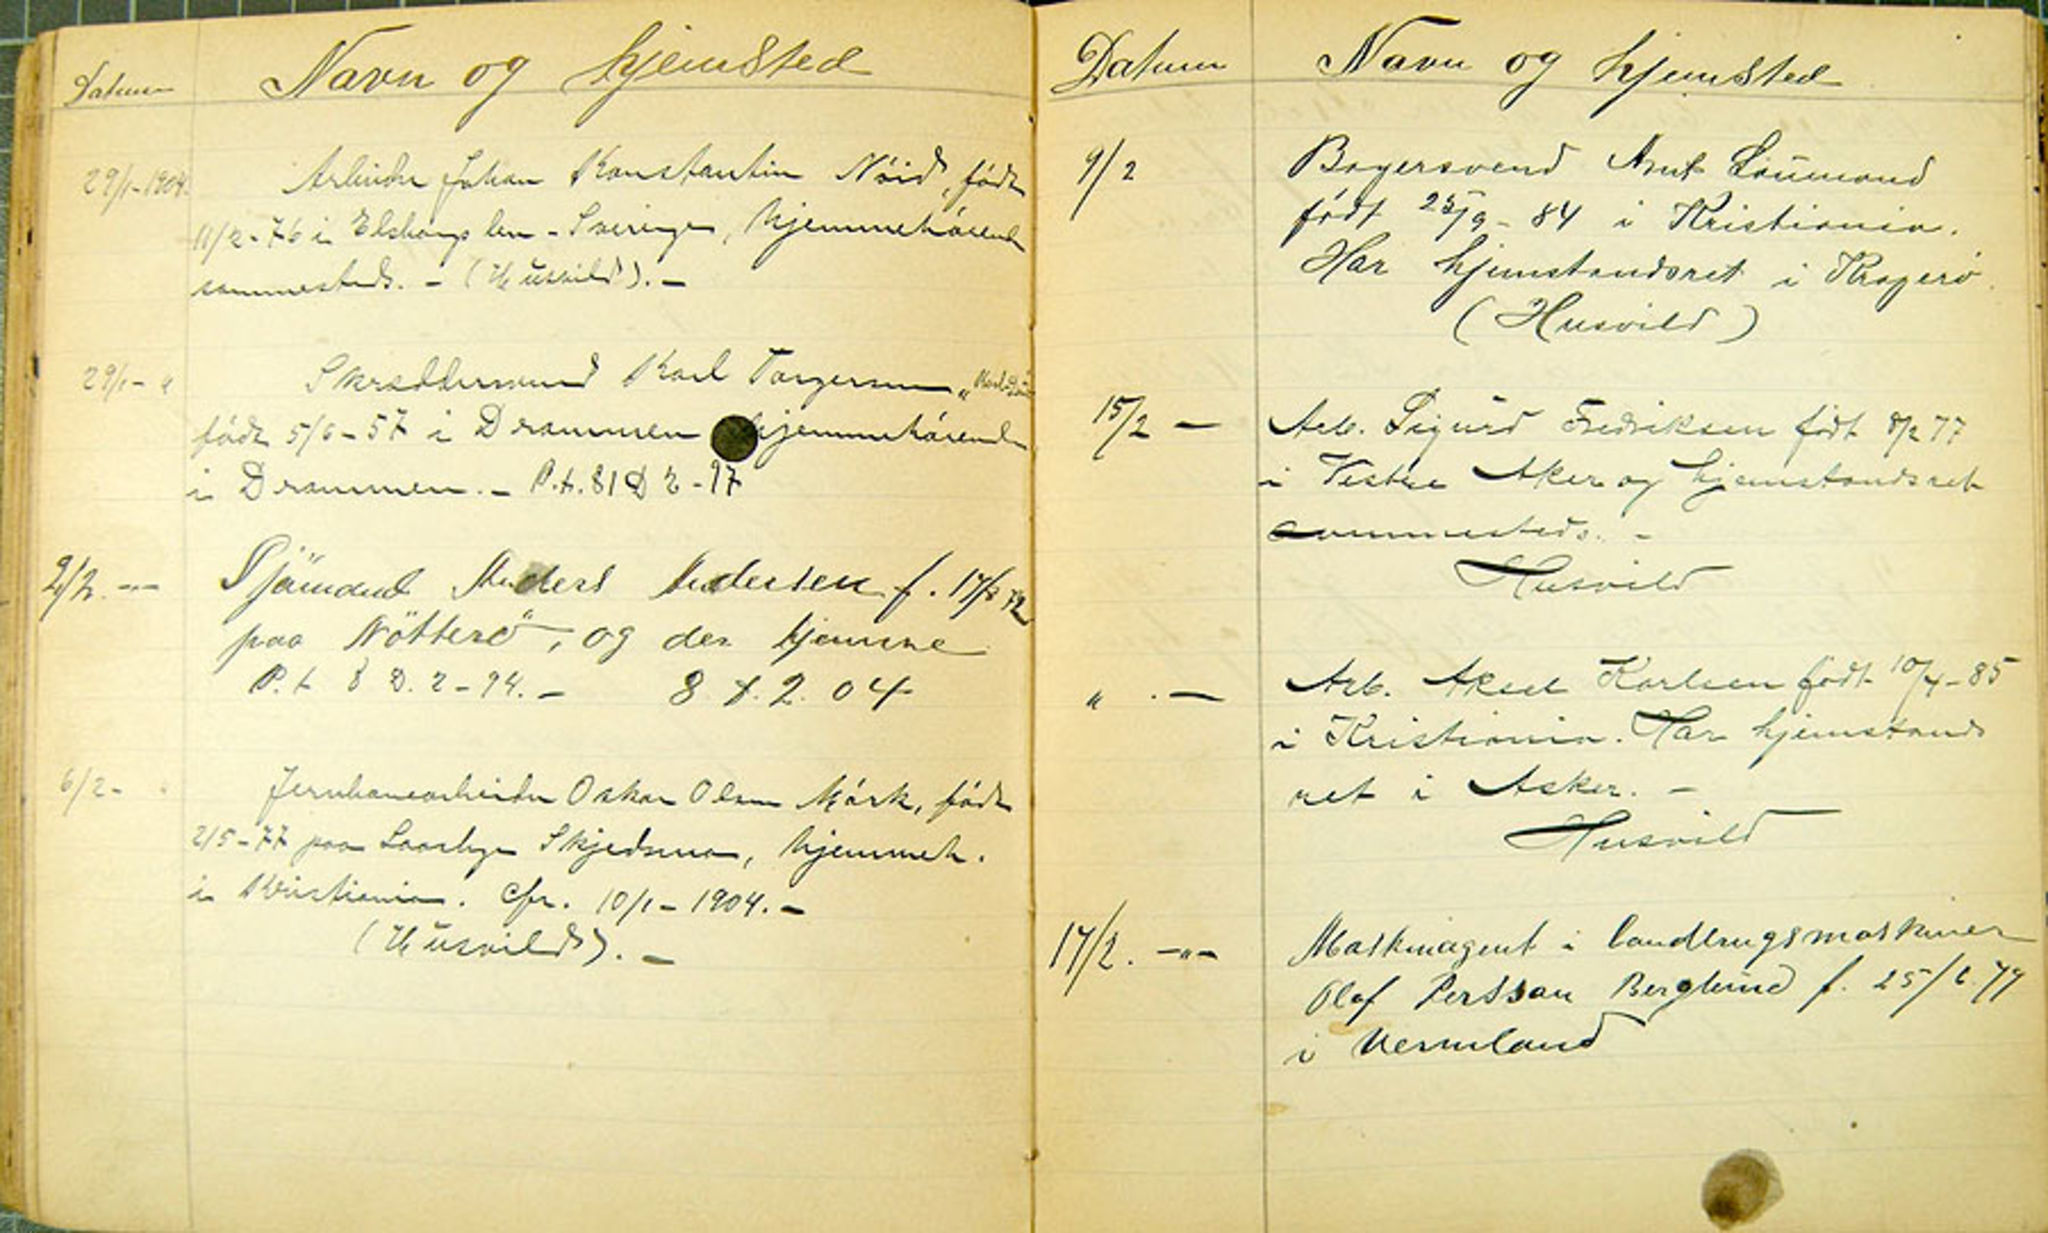 Datum
Navn og hjemsted
29/1-1904.
Arbeider Johan Konstantin Nöid, född
11/2-76 i Elsborgs len - Sverige, hjemmehörende
sammesteds. - (Husvild). -
29/1- "
Skreddersvend Karl Torgersen "
född 5/6-57 i Drammen hjemmehörende
i Drammen. - P.t. 81 D 2-97
2/2. -"-
Sjömand Anders Andersen f. 17/8 72
paa Nötterö, og der hjemme
P.t. 8 D. 2-94. - 8 D. 2. 04
6/2- "
Jernbanearbeider Oskar Olsen Mörk, född
2/5-77 paa Skjedsmo, hjemmeh.
i Kristiania. Cfr. 10/1-1904. -
(Husvild). -
Datum
Navn og hjemsted
9/2
Bagersvend Arnt
født 25/9-84 i Kristiania.
Har hjemstandsret i Kragerö.
(Husvild)
15/2 -
Arb. Sigurd Fredriksen født 8/2 77
i Vestre Aker og hjemstandsret
sammesteds. -
Husvild
" . -
Arb. Aksel Karlsen født 10/4-85
i Kristiania. Har hjemstands
ret i Asker. -
Husvild
17/2. -"-
Maskinagent i landbrugsmaskiner
Olof Persson Berglund f. 25/6 79
i Vermland